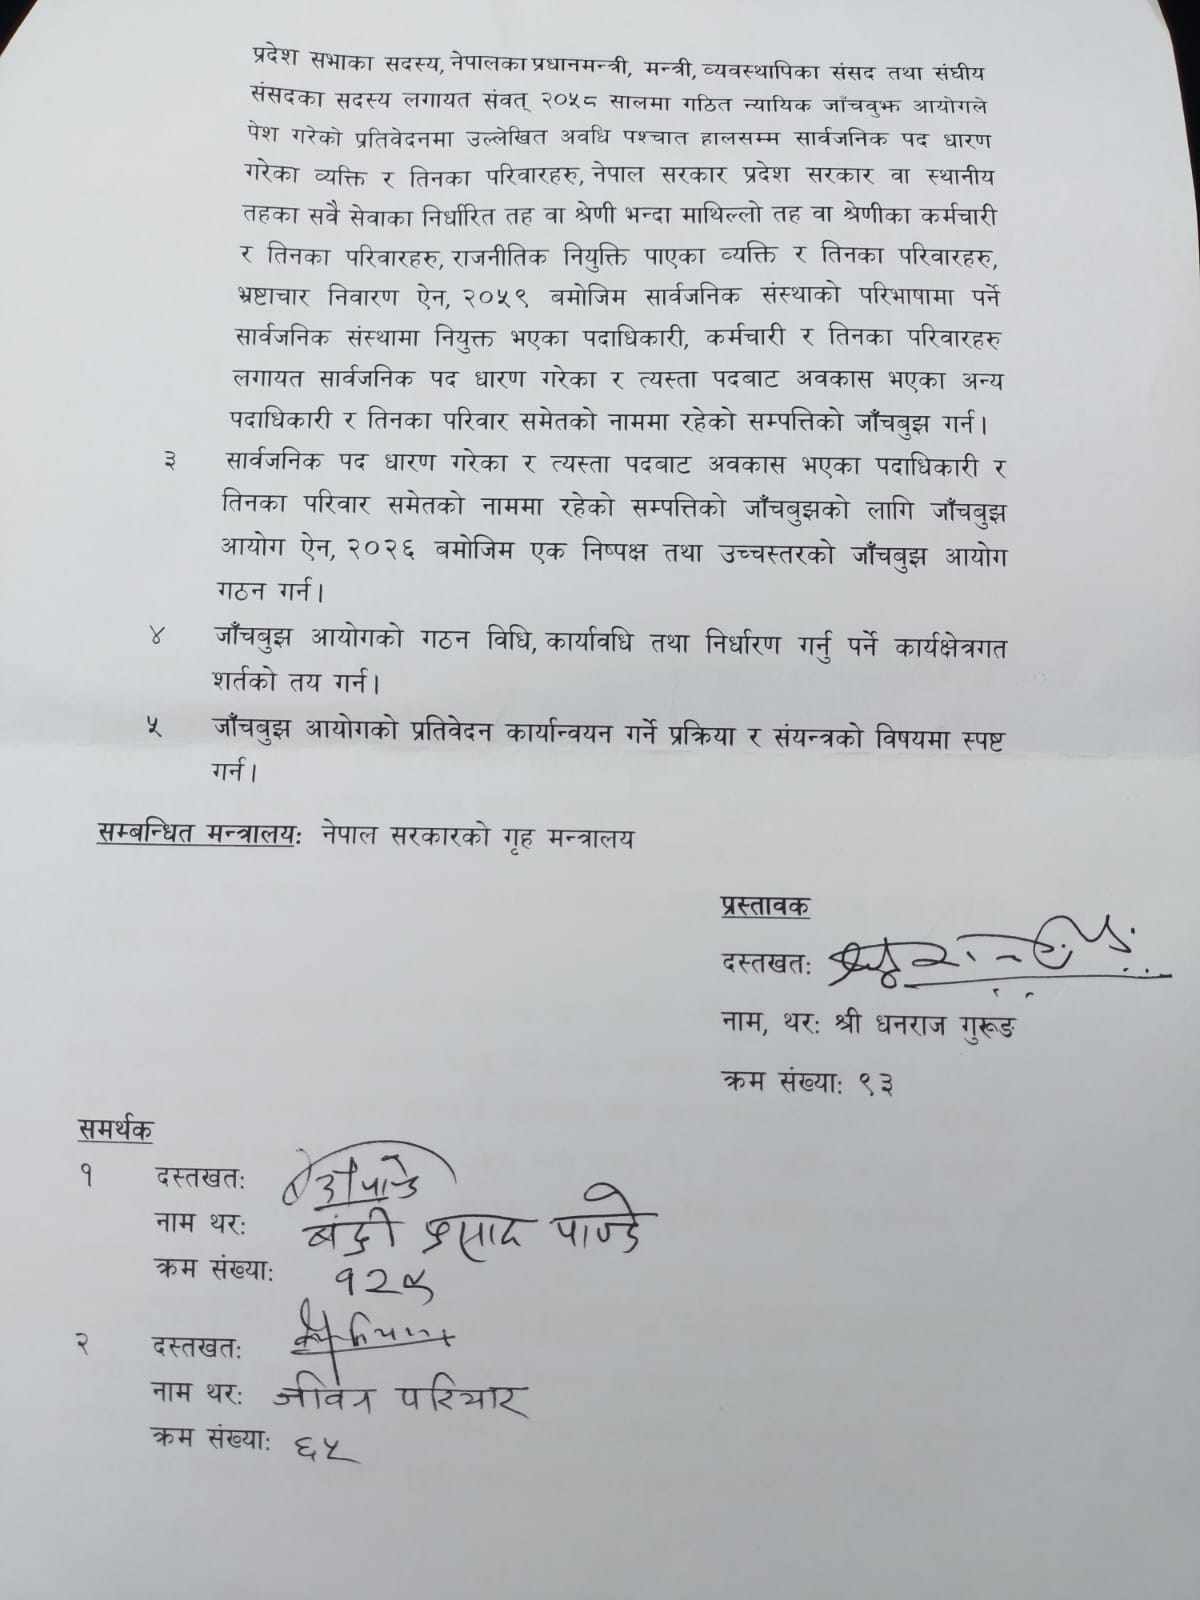 प्रदेश सभाका सदस्य, नेपालका प्रधानमन्त्री, मन्त्री, व्यवस्थापिका संसद तथा संघीय
संसदका सदस्य लगायत संवत् २०५८ सालमा गठित न्यायिक जाँचवुझ आयोगले
पेश गरेको प्रतिवेदनमा उल्लेखित अवधि पश्चात हालसम्म सार्वजनिक पद धारण
गरेका व्यक्ति र तिनका परिवारहरु, नेपाल सरकार प्रदेश सरकार वा स्थानीय
तहका सवै सेवाका निर्धारित तह वा श्रेणी भन्दा माथिल्लो तह वा श्रेणीका कर्मचारी
र तिनका परिवारहरु, राजनीतिक नियुक्ति पाएका व्यक्ति र तिनका परिवारहरु,
भ्रष्टाचार निवारण ऐन, २०५९ बमोजिम सार्वजनिक संस्थाको परिभाषामा पर्ने
सार्वजनिक संस्थामा नियुक्त भएका पदाधिकारी, कर्मचारी र तिनका परिवारहरु
लगायत सार्वजनिक पद धारण गरेका र त्यस्ता पदबाट अवकास भएका अन्य
पदाधिकारी र तिनका परिवार समेतको नाममा रहेको सम्पत्तिको जाँचबुझ गर्न।
३ सार्वजनिक पद धारण गरेका र त्यस्ता पदबाट अवकास भएका पदाधिकारी र
तिनका परिवार समेतको नाममा रहेको सम्पत्तिको जाँचबुझको लागि जाँचबुझ
आयोग ऐन, २०२६ बमोजिम एक निष्पक्ष तथा उच्चस्तरको जाँचबुझ आयोग
गठन गर्न।
४ जाँचबुझ आयोगको गठन विधि, कार्यावधि तथा निर्धारण गर्नु पर्ने कार्यक्षेत्रगत
शर्तको तय गर्न।
५ जाँचबुझ आयोगको प्रतिवेदन कार्यान्वयन गर्ने प्रक्रिया र संयन्त्रको विषयमा स्पष्ट
गर्न।
सम्बन्धित मन्त्रालय: नेपाल सरकारको गृह मन्त्रालय
प्रस्तावक
दस्तखत:
नाम, थर: श्री धनराज गुरूङ
क्रम संख्या: ९३
समर्थक
१ दस्तखत:
नाम थर: बद्री प्रसाद पाण्डे
क्रम संख्या: १२९
२ दस्तखत:
नाम थर: जीवन परियार
क्रम संख्या: ६५